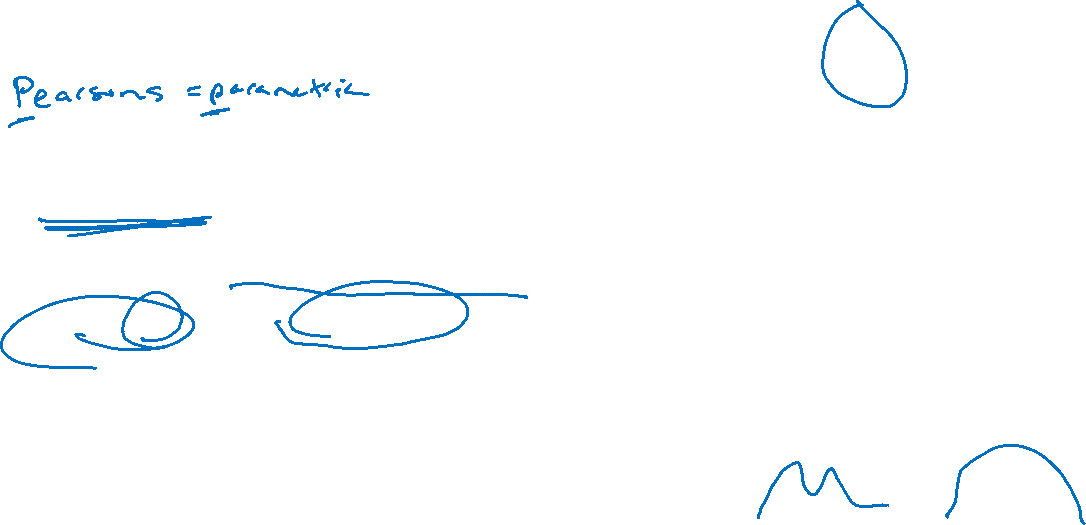 Pearsons = parametric